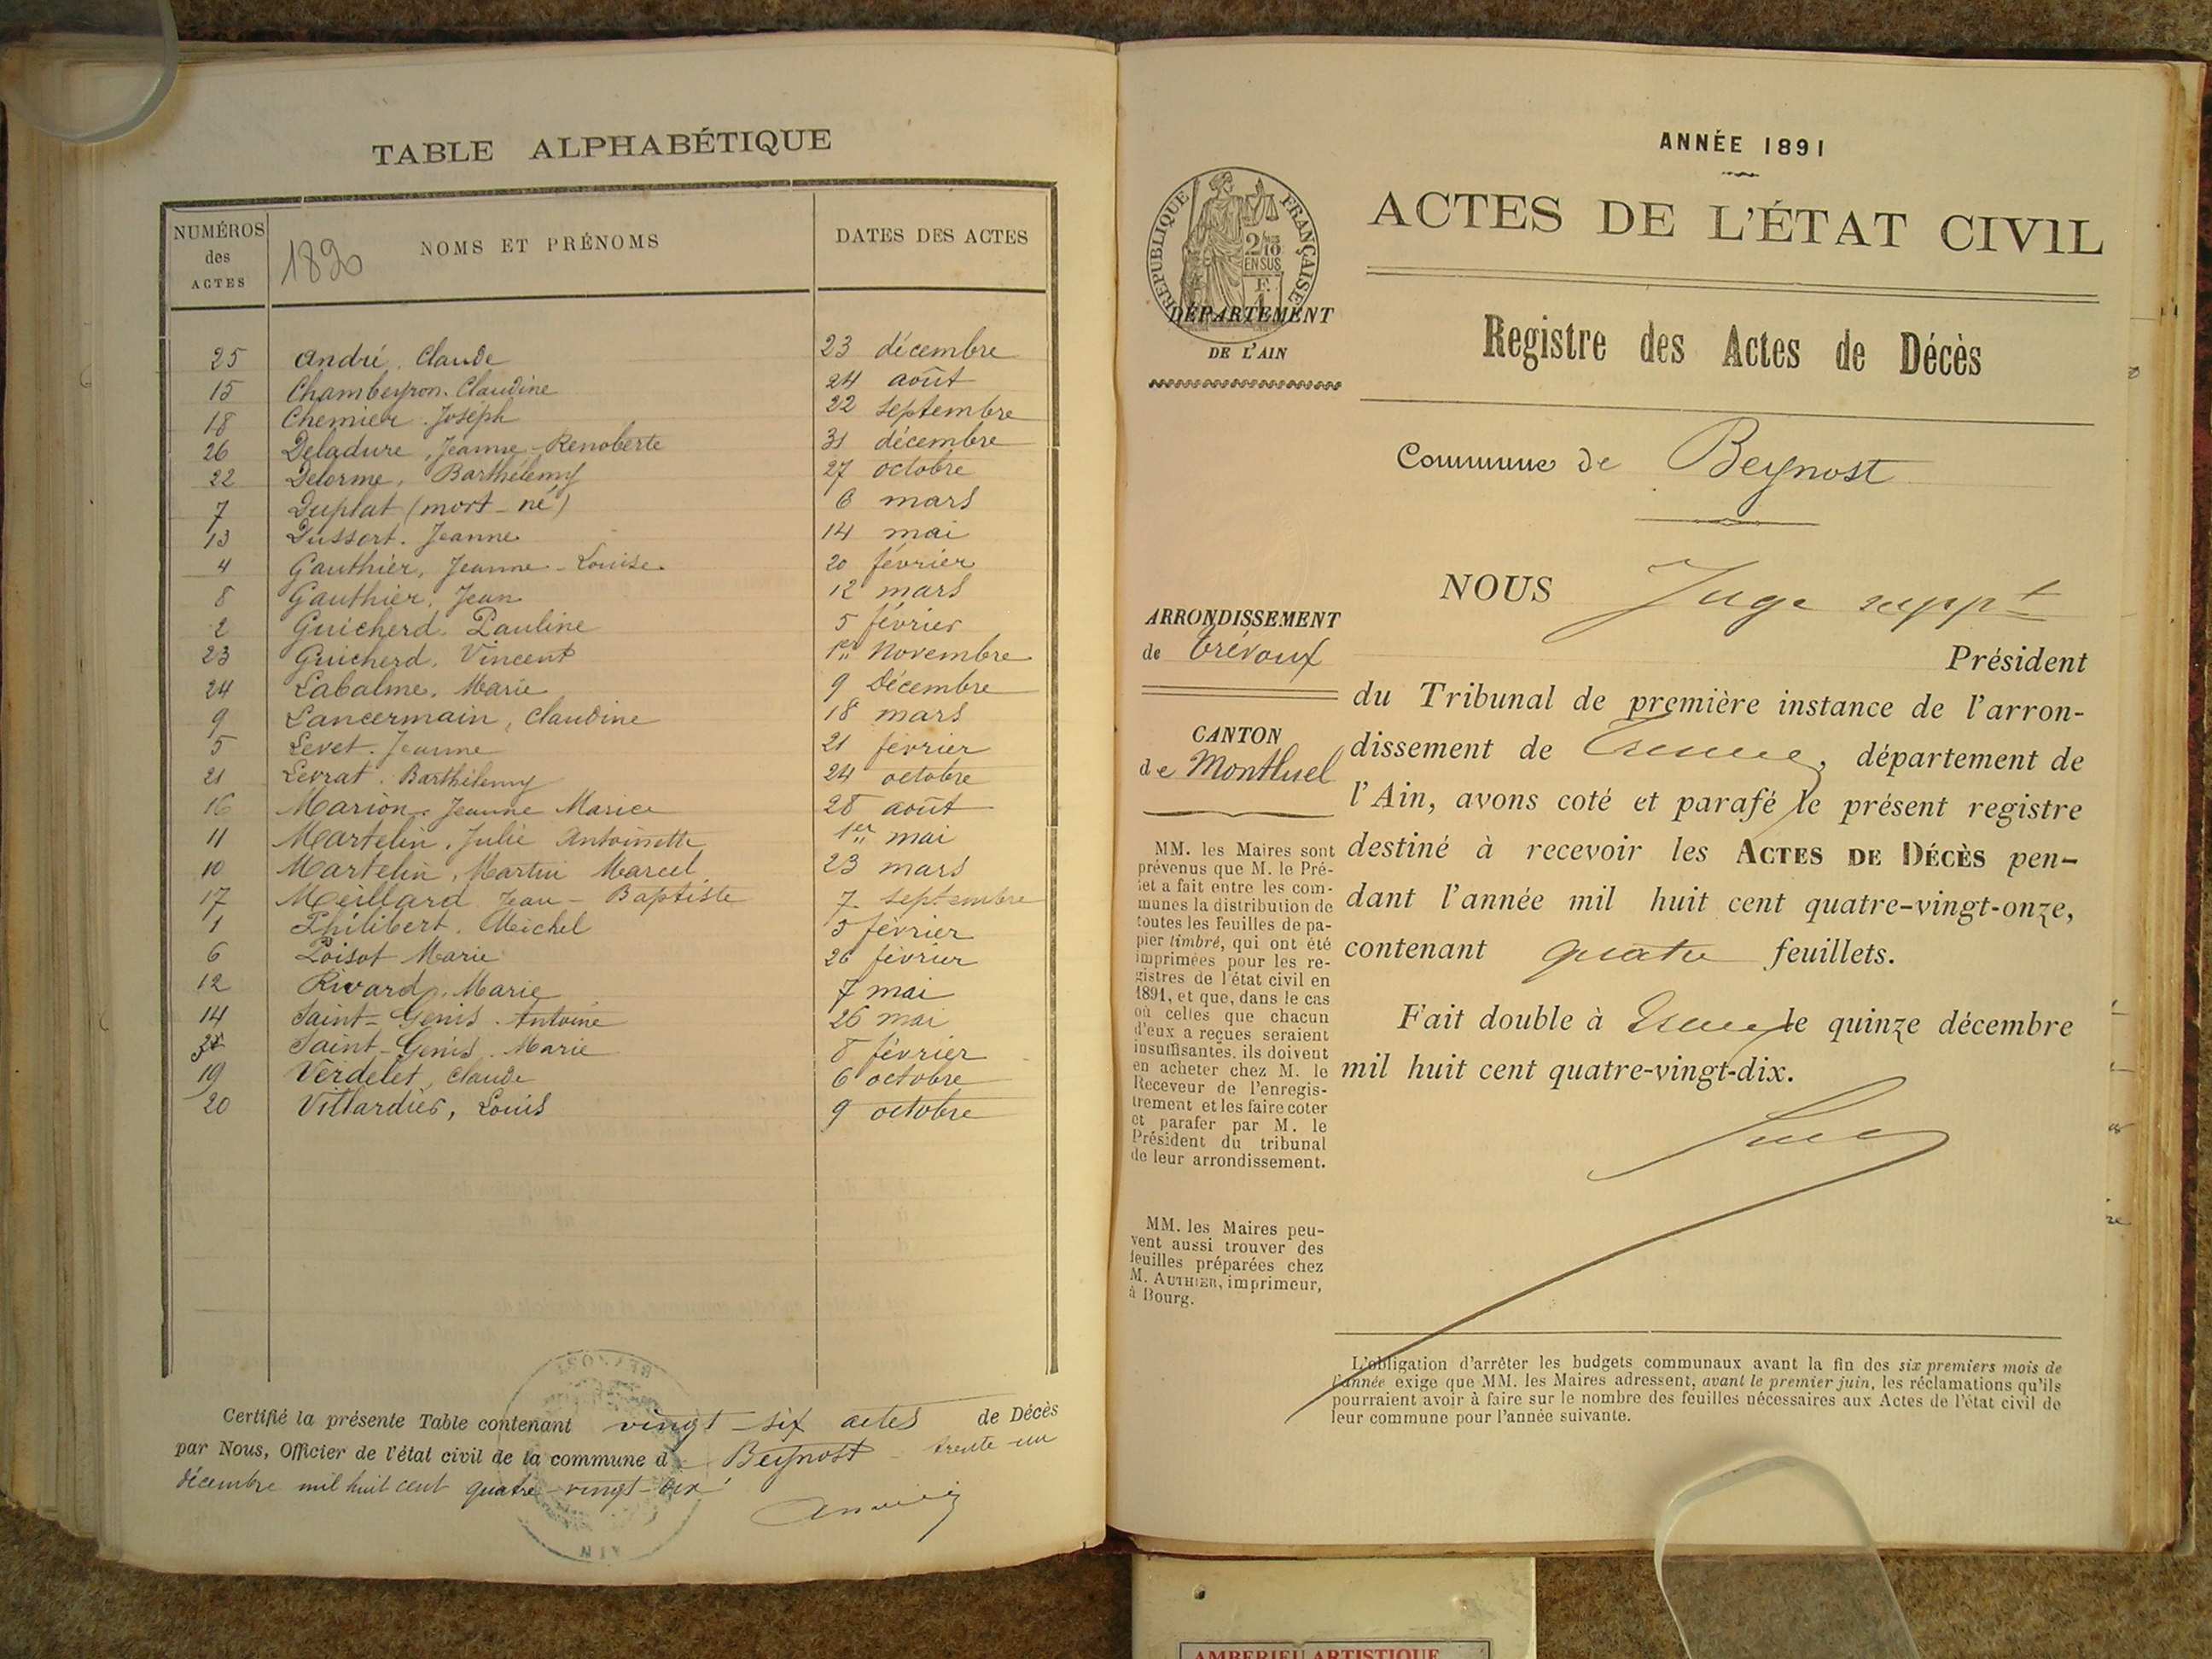 TABLE ALPHABÉTIQUE
NUMÉROS des ACTES
1890 NOMS ET PRÉNOMS
DATES DES ACTES
25 André, Claude 23 décembre
15 Chambeyron, Claudine 24 août
18 Chemier, Joseph 22 septembre
26 Deladure, Jeanne-Renoberte 31 décembre
22 Delorme, Barthélemy 27 octobre
7 Duplat (mort-né) 6 mars
13 Dussort, Jeanne 14 mai
4 Gauthier, Jeanne-Louise 20 février
8 Gauthier, Jean 12 mars
2 Guicherd, Pauline 5 février
23 Guicherd, Vincent 1er Novembre
24 Labalme, Marie 9 Décembre
9 Lancermain, Claudine 18 mars
5 Levet, Jeanne 21 février
21 Levrat, Barthélemy 24 octobre
16 Marion, Jeanne Marie 28 août
11 Martelin, Julie Antoinette 1er mai
10 Martelin, Martin Marcel 23 mars
17 Meillard Jean-Baptiste 7 septembre
1 Philibert, Michel 5 février
6 Poisot Marie 26 février
12 Rivard, Marie 7 mai
14 Saint-Genis, Antoine 26 mai
3 Saint-Genis, Marie 8 février
19 Verdelet, Claude 6 octobre
20 Villardier, Louis 9 octobre
Certifié la présente Table contenant vingt-six actes de Décès
par Nous, Officier de l'état civil de la commune d Beynost trente un
décembre mil huit cent quatre-vingt-dix
AIN
ANNÉE 1891
ACTES DE L'ÉTAT CIVIL
RÉPUBLIQUE FRANÇAISE
2/10 EN SUS
DÉPARTEMENT
DE L'AIN
Registre des Actes de Décès
Commune de Beynost
NOUS Juge suppt
Président
ARRONDISSEMENT
de Trévoux
CANTON
de Montluel
du Tribunal de première instance de l'arron-
dissement de , département de
l'Ain, avons coté et parafé le présent registre
destiné à recevoir les ACTES DE DÉCÈS pen-
dant l'année mil huit cent quatre-vingt-onze,
contenant quatre feuillets.
Fait double à le quinze décembre
mil huit cent quatre-vingt-dix.
MM. les Maires sont
prévenus que M. le Pré-
fet a fait entre les com-
munes la distribution de
toutes les feuilles de pa-
pier timbré, qui ont été
imprimées pour les re-
gistres de l'état civil en
1891, et que, dans le cas
où celles que chacun
d'eux a reçues seraient
insuffisantes, ils doivent
en acheter chez M. le
Receveur de l'enregis-
trement et les faire coter
et parafer par M. le
Président du tribunal
de leur arrondissement.
MM. les Maires peu-
vent aussi trouver des
feuilles préparées chez
M. AUTHIER, imprimeur,
à Bourg.
L'obligation d'arrêter les budgets communaux avant la fin des six premiers mois de
l'année exige que MM. les Maires adressent, avant le premier juin, les réclamations qu'ils
pourraient avoir à faire sur le nombre des feuilles nécessaires aux Actes de l'état civil de
leur commune pour l'année suivante.
AMBERIEU ARTISTIQUE